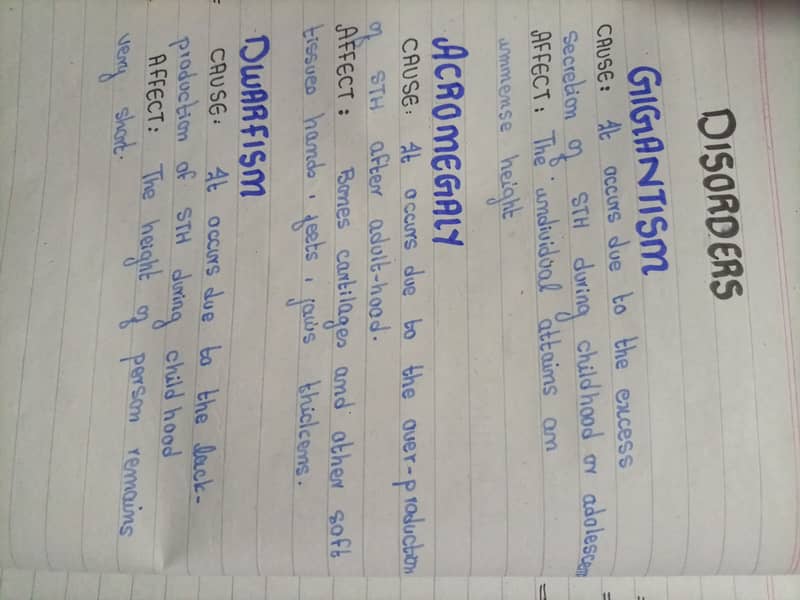 DISORDERS
GIGANTISM
CAUSE: It occurs due to the excess
secretion of STH during childhood or adolescen
AFFECT: The individual attains an
immense height
ACROMEGALY
CAUSE: It occurs due to the over-production
of STH after adult-hood.
AFFECT: Bones cartilages and other soft
tissues hands, feets, jaws thickens.
DWARFISM
CAUSE: It occurs due to the lack-
production of STH during childhood
AFFECT: The height of person remains
very short.